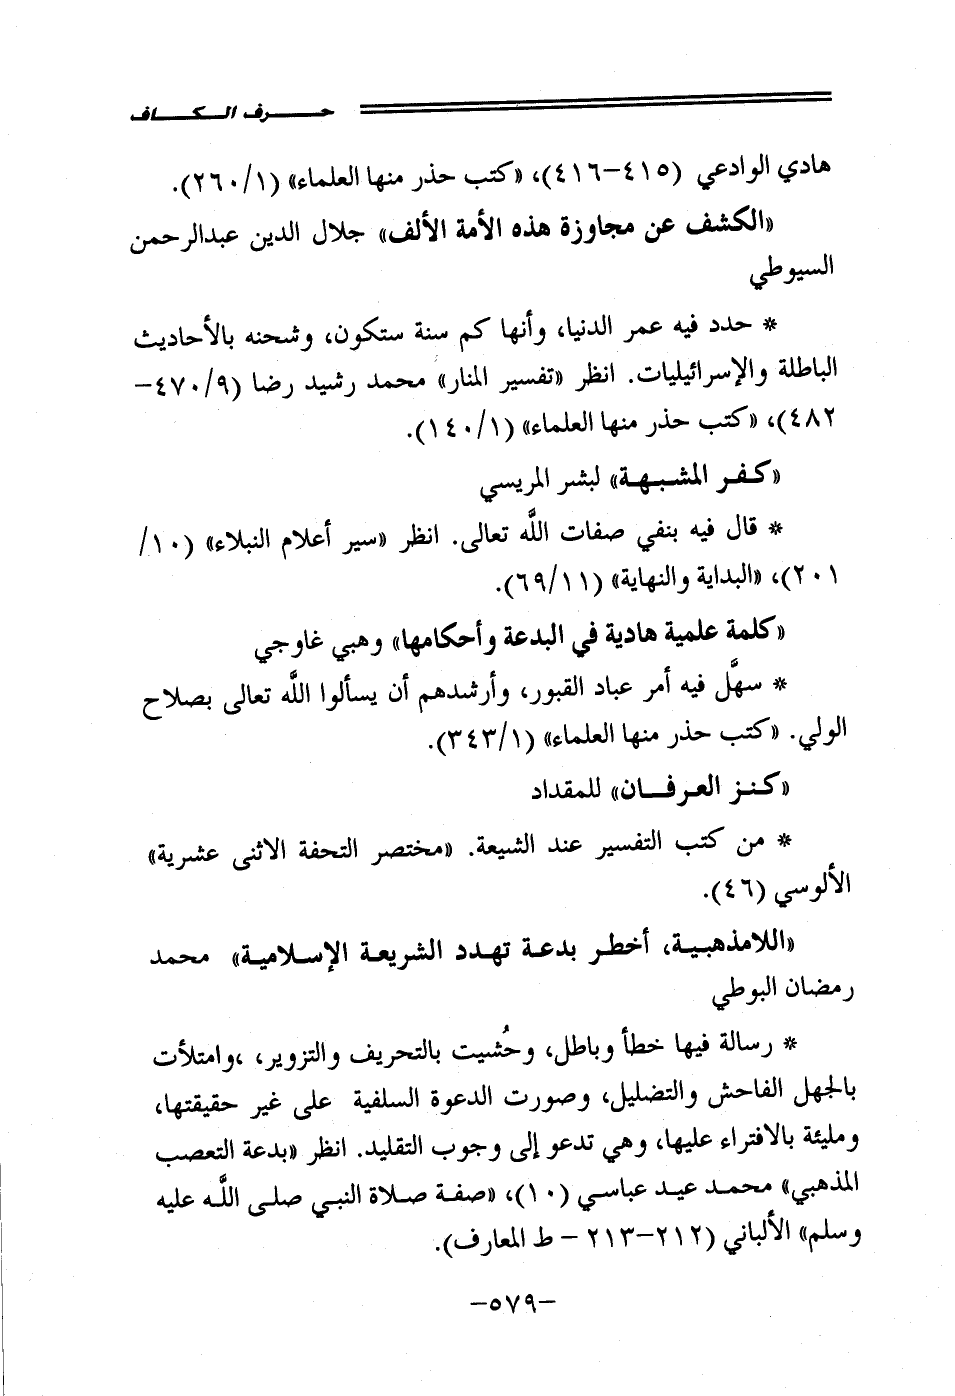 حرف الكاف
هادي الوادعي (٤١٥-٤١٦)، «كتب حذر منها العلماء» (٢٦٠/١).
«الكشف عن مجاوزة هذه الأمة الألف» جلال الدين عبدالرحمن
السيوطي
* حدد فيه عمر الدنيا، وأنها كم سنة ستكون، وشحنه بالأحاديث
الباطلة والإسرائيليات. انظر «تفسير المنار» محمد رشيد رضا (٤٧٠/٩-
٤٨٢)، «كتب حذر منها العلماء» (١٤٠/١).
«كفر المشبهة» لبشر المريسي
* قال فيه بنفي صفات اللَّه تعالى. انظر «سير أعلام النبلاء» (١٠/
٢٠١)، «البداية والنهاية» (٦٩/١١).
«كلمة علمية هادية في البدعة وأحكامها» وهبي غاوجي
* سهَّل فيه أمر عباد القبور، وأرشدهم أن يسألوا اللَّه تعالى بصلاح
الولي. «كتب حذر منها العلماء» (٣٤٣/١).
«كنز العرفان» للمقداد
* من كتب التفسير عند الشيعة. «مختصر التحفة الاثنى عشرية»
الألوسي (٤٦).
«اللامذهبية، أخطر بدعة تهدد الشريعة الإسلامية» محمد
رمضان البوطي
* رسالة فيها خطأ وباطل، وحُشيت بالتحريف والتزوير، ،وامتلأت
بالجهل الفاحش والتضليل، وصورت الدعوة السلفية على غير حقيقتها،
ومليئة بالافتراء عليها، وهي تدعو إلى وجوب التقليد. انظر «بدعة التعصب
المذهبي» محمد عيد عباسي (١٠)، «صفة صلاة النبي صلى اللَّه عليه
وسلم» الألباني (٢١٢-٢١٣ - ط المعارف).
-٥٧٩-